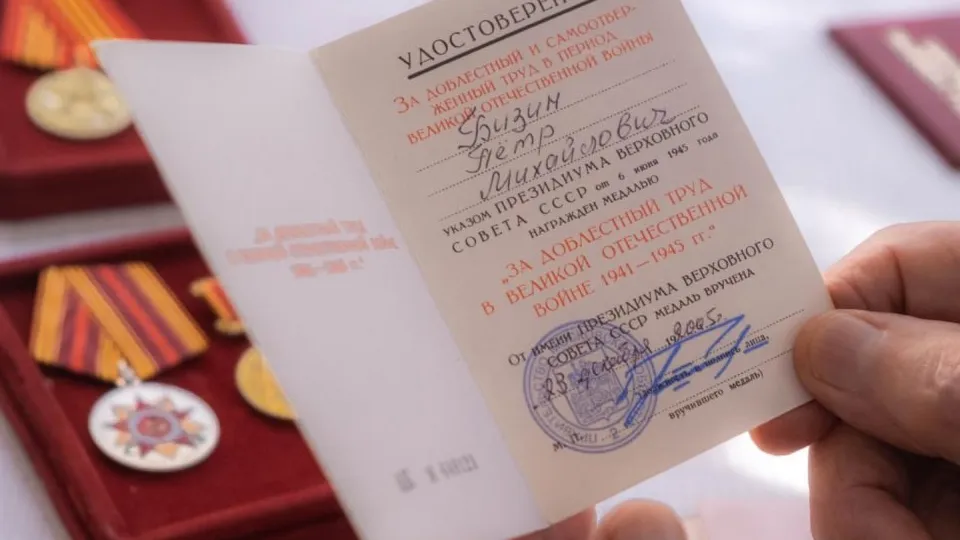 УДОСТОВЕРЕНИ
ЗА ДОБЛЕСТНЫЙ И САМООТВЕР-
ЖЕННЫЙ ТРУД В ПЕРИОД
ВЕЛИКОЙ ОТЕЧЕСТВЕННОЙ ВОЙНЫ
Бизин
Пётр
Михайлович
УКАЗОМ ПРЕЗИДИУМА ВЕРХОВНОГО
СОВЕТА СССР от 6 июня 1945 года
НАГРАЖДЕН МЕДАЛЬЮ
„ЗА ДОБЛЕСТНЫЙ ТРУД
В ВЕЛИКОЙ ОТЕЧЕСТВЕННОЙ
ВОЙНЕ 1941—1945 гг.“
От ИМЕНИ ПРЕЗИДИУМА ВЕРХОВНОГО
СОВЕТА СССР МЕДАЛЬ ВРУЧЕНА
23 декабря 2005г.
подпись лица,
вручившего медаль)
М. П.